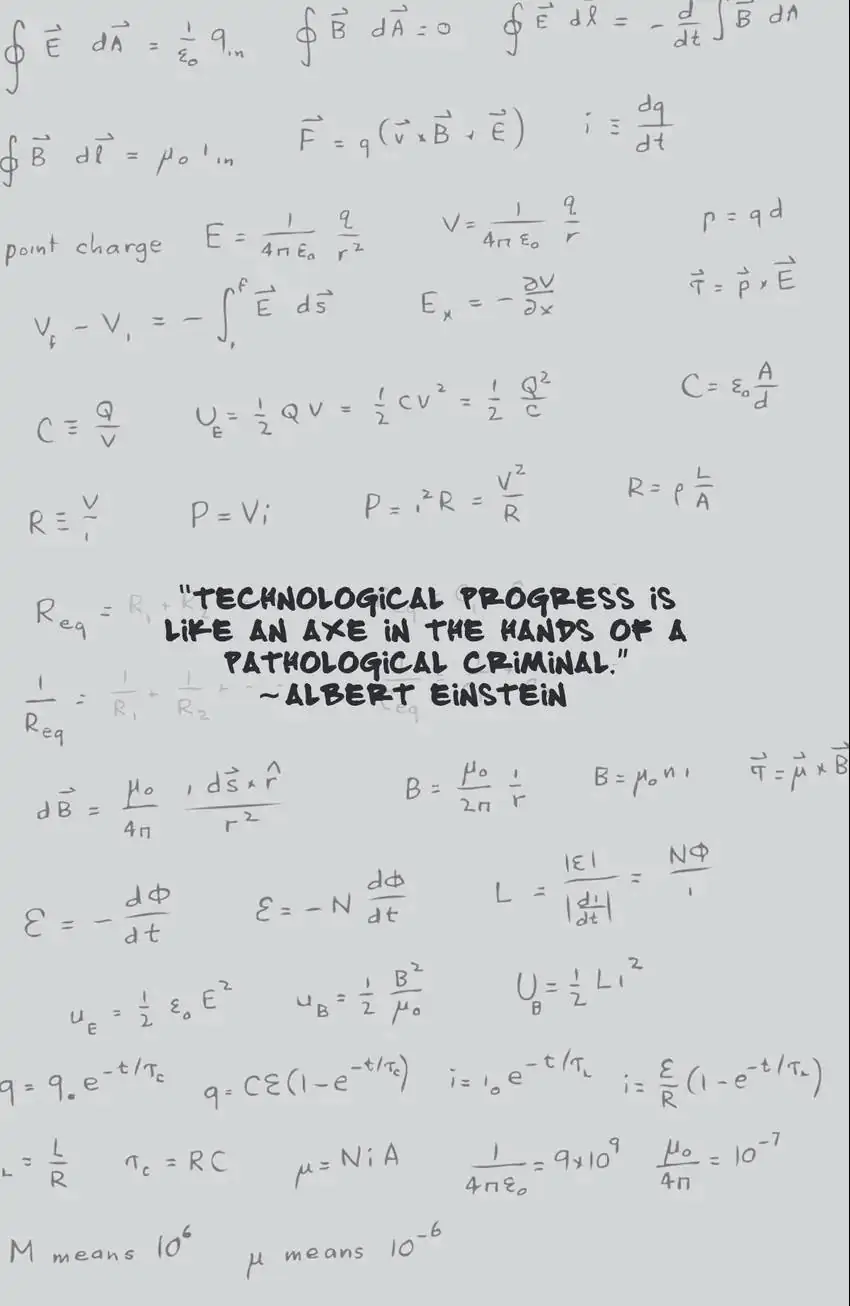 ∮ E⃗ dA⃗ = 1/ε₀ q_in   ∮ B⃗ dA⃗ = 0   ∮ E⃗ dl⃗ = - d/dt ∫ B⃗ dA
∮ B⃗ dl⃗ = μ₀ i_in   F⃗ = q(v⃗ × B⃗ + E⃗)   i ≡ dq/dt
point charge   E = 1/4πε₀ q/r²   V = 1/4πε₀ q/r   p = qd
V_f - V_i = - ∫_i^f E⃗ ds⃗   E_x = - ∂V/∂x   τ⃗ = p⃗ × E⃗
C ≡ Q/V   U_E = 1/2 QV = 1/2 CV² = 1/2 Q²/C   C = ε₀ A/d
R ≡ V/i   P = Vi   P = i²R = V²/R   R = ρ L/A
R_eq = R₁ +
"TECHNOLOGICAL PROGRESS IS
LIKE AN AXE IN THE HANDS OF A
PATHOLOGICAL CRIMINAL."
~ALBERT EINSTEIN
1/R_eq = 1/R₁ + 1/R₂ +
dB⃗ = μ₀/4π i ds⃗ × r̂/r²   B = μ₀/2π i/r   B = μ₀ n i   τ⃗ = μ⃗ × B⃗
ε = - dΦ/dt   ε = - N dΦ/dt   L = |ε|/|di/dt| = NΦ/i
u_E = 1/2 ε₀ E²   u_B = 1/2 B²/μ₀   U_B = 1/2 Li²
q = q₀ e^(-t/τ_C)   q = Cε(1 - e^(-t/τ_C))   i = i₀ e^(-t/τ_L)   i = ε/R (1 - e^(-t/τ_L))
L = L/R   τ_C = RC   μ = NiA   1/4πε₀ = 9×10⁹   μ₀/4π = 10⁻⁷
M means 10⁶   μ means 10⁻⁶